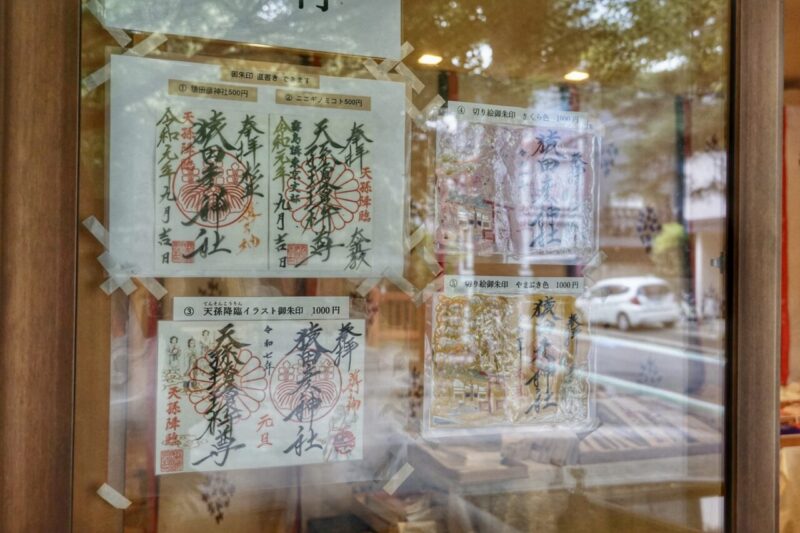 御朱印 直書きできます
① 猿田彦神社500円
② ニニギノミコト500円
奉拝
天孫降臨
猿田彦神社
令和元年九月吉日
奉拝
天孫降臨
令和元年
九月吉日
③ 天孫降臨イラスト御朱印 1000円
てんそんこうりん
奉拝
猿田彦神社
令和七年
元旦
天孫降臨
④ 切り絵御朱印 さくら色 1000円
奉拝
猿田彦神社
⑤ 切り絵御朱印 やまぶき色 1000円
奉拝
猿田彦神社